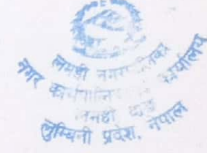 लमही नगरपालिका
नगर कार्यपालिकाको कार्यालय
लमही दाङ
लुम्बिनी प्रदेश, नेपाल